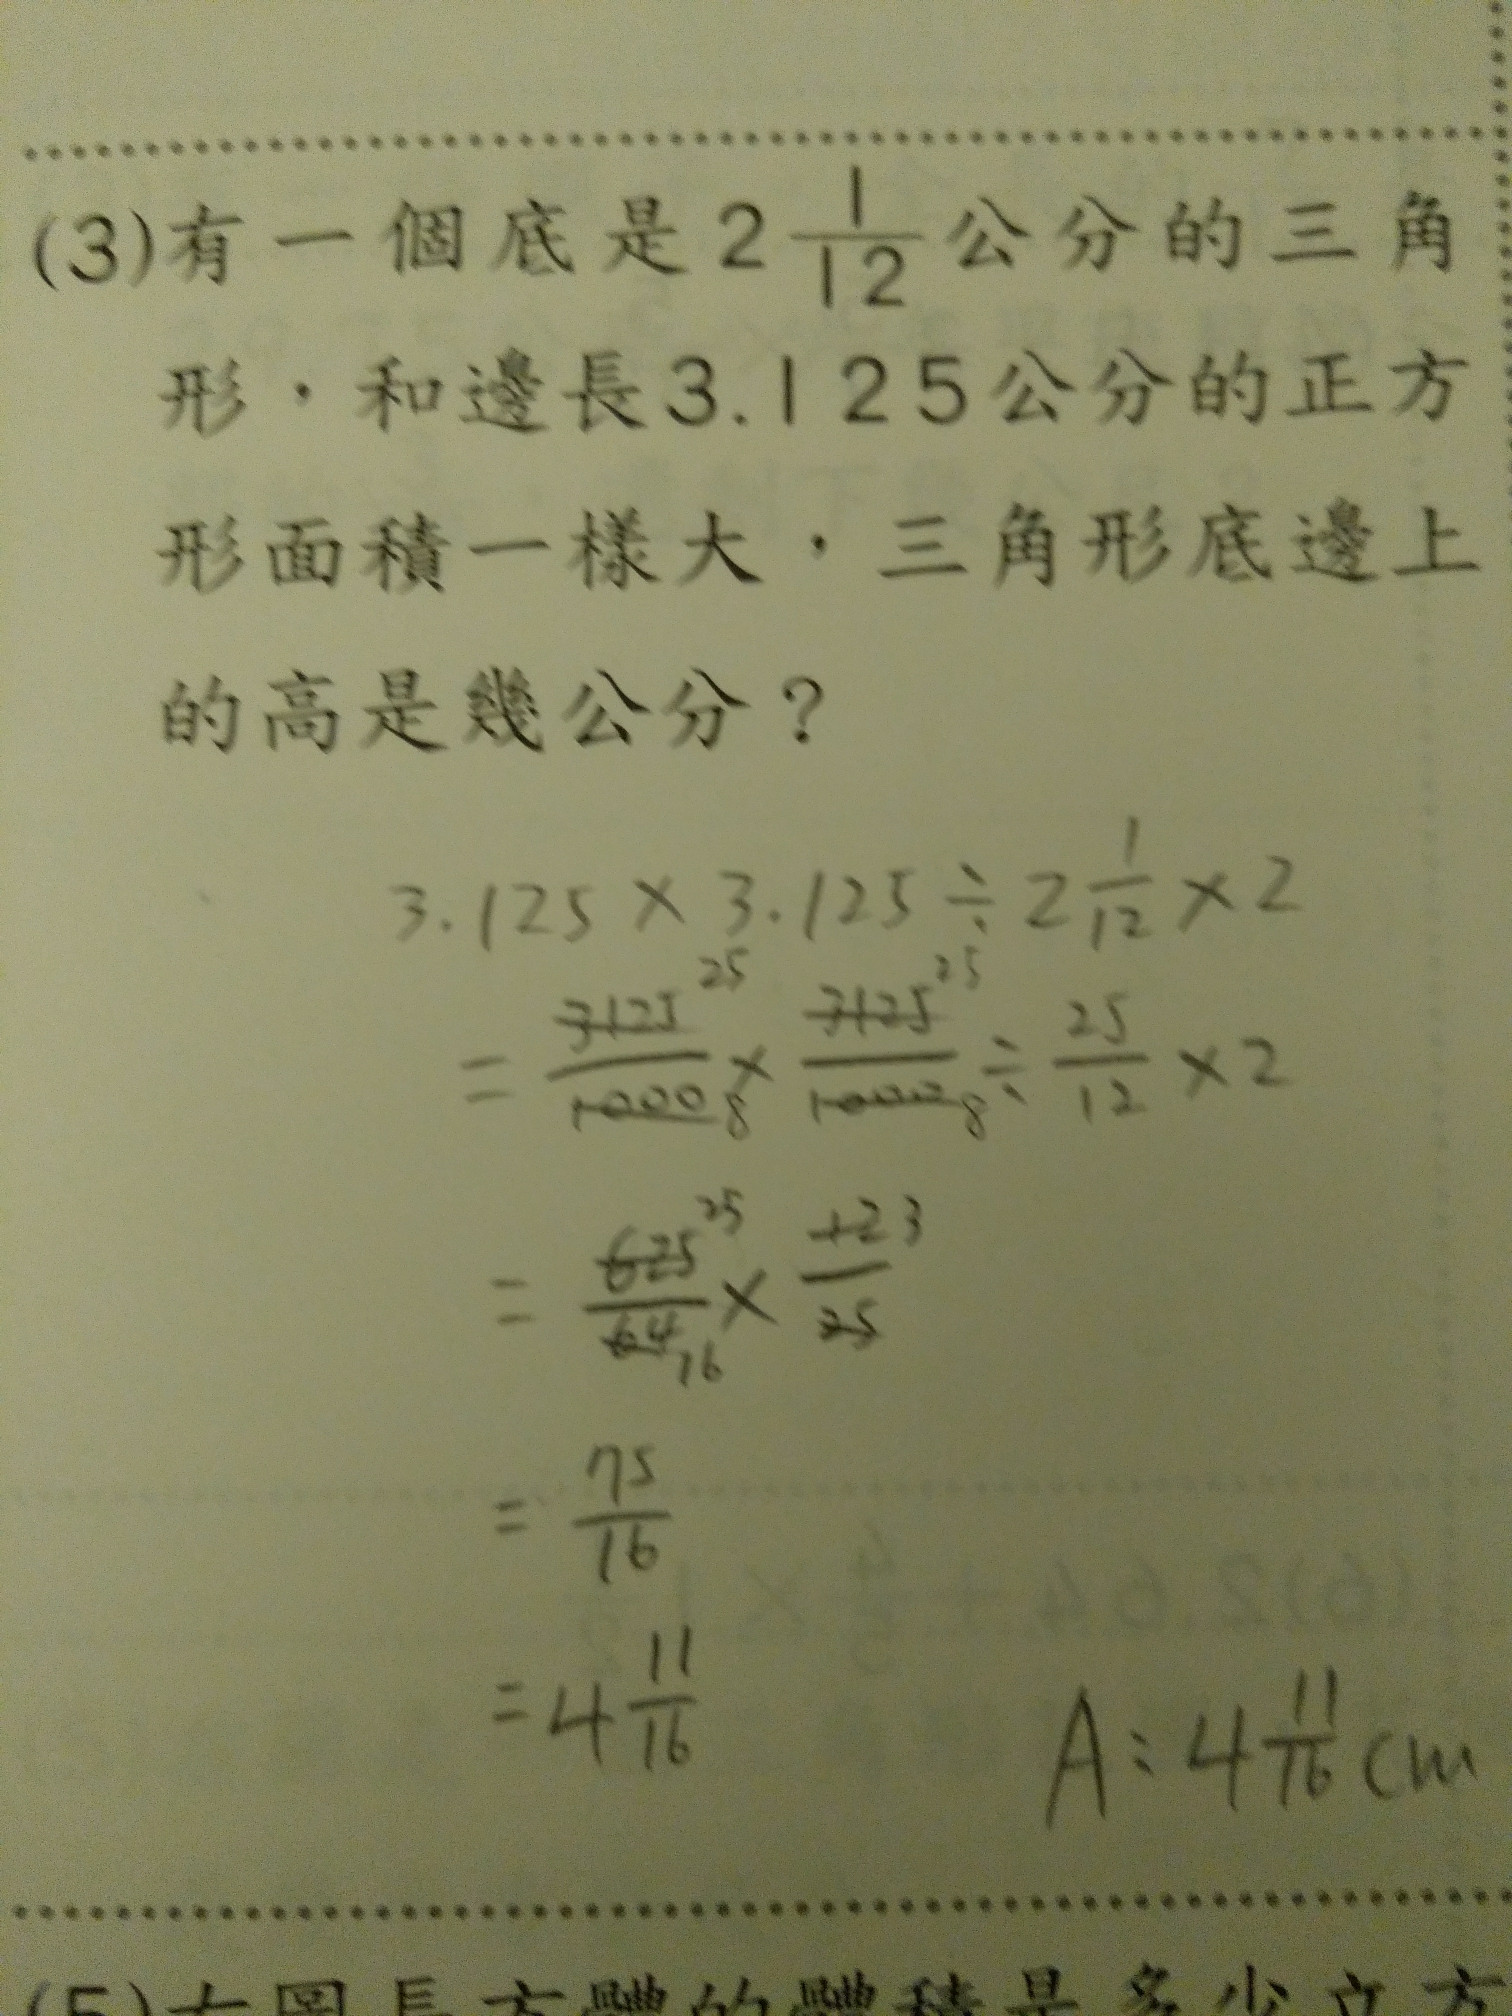 (3)有一個底是2 1/12 公分的三角
形，和邊長3.125公分的正方
形面積一樣大，三角形底邊上
的高是幾公分？
3.125 × 3.125 ÷ 2 1/12 × 2
= 3125/1000 × 3125/1000 ÷ 25/12 × 2
25 8 25 8
= 625/64 × 12/25
25 16 3
= 75/16
= 4 11/16
A: 4 11/16 cm
(5)右圖長方體的體積是多少立方